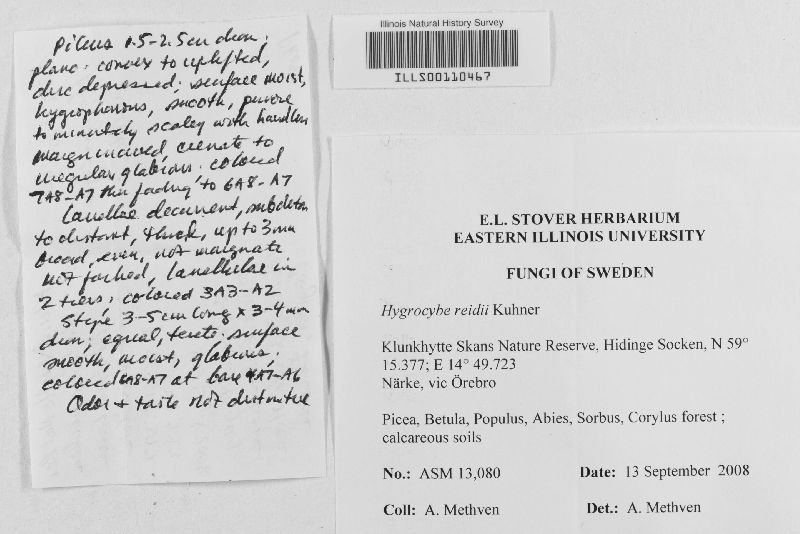 Pileus 1.5-2.5cm diam;
plano-convex to uplifted,
disc depressed; surface moist,
hygrophonous, smooth, 
to minutely scaley with handlens
margin incurved, crenate to
irregular, glabrous. colored
7A8-A7 then fading to 6A8-A7
Lamellae decurrent, subdistan
to distant, thick, up to 3mm
broad, even, not marginate
not forked, lamellulae in
2 tiers; colored 3A3-A2
Stipe 3-5cm long x 3-4mm
diam; equal, terete; surface
smooth, moist, glabrous;
colored 6A8-A7 at base 4A7-A6
Odor + taste not distinctive
Illinois Natural History Survey
ILLS00110467
E.L. STOVER HERBARIUM
EASTERN ILLINOIS UNIVERSITY
FUNGI OF SWEDEN
Hygrocybe reidii Kuhner
Klunkhytte Skans Nature Reserve, Hidinge Socken, N 59°
15.377; E 14° 49.723
Närke, vic Örebro
Picea, Betula, Populus, Abies, Sorbus, Corylus forest ;
calcareous soils
No.: ASM 13,080 Date: 13 September 2008
Coll: A. Methven Det.: A. Methven